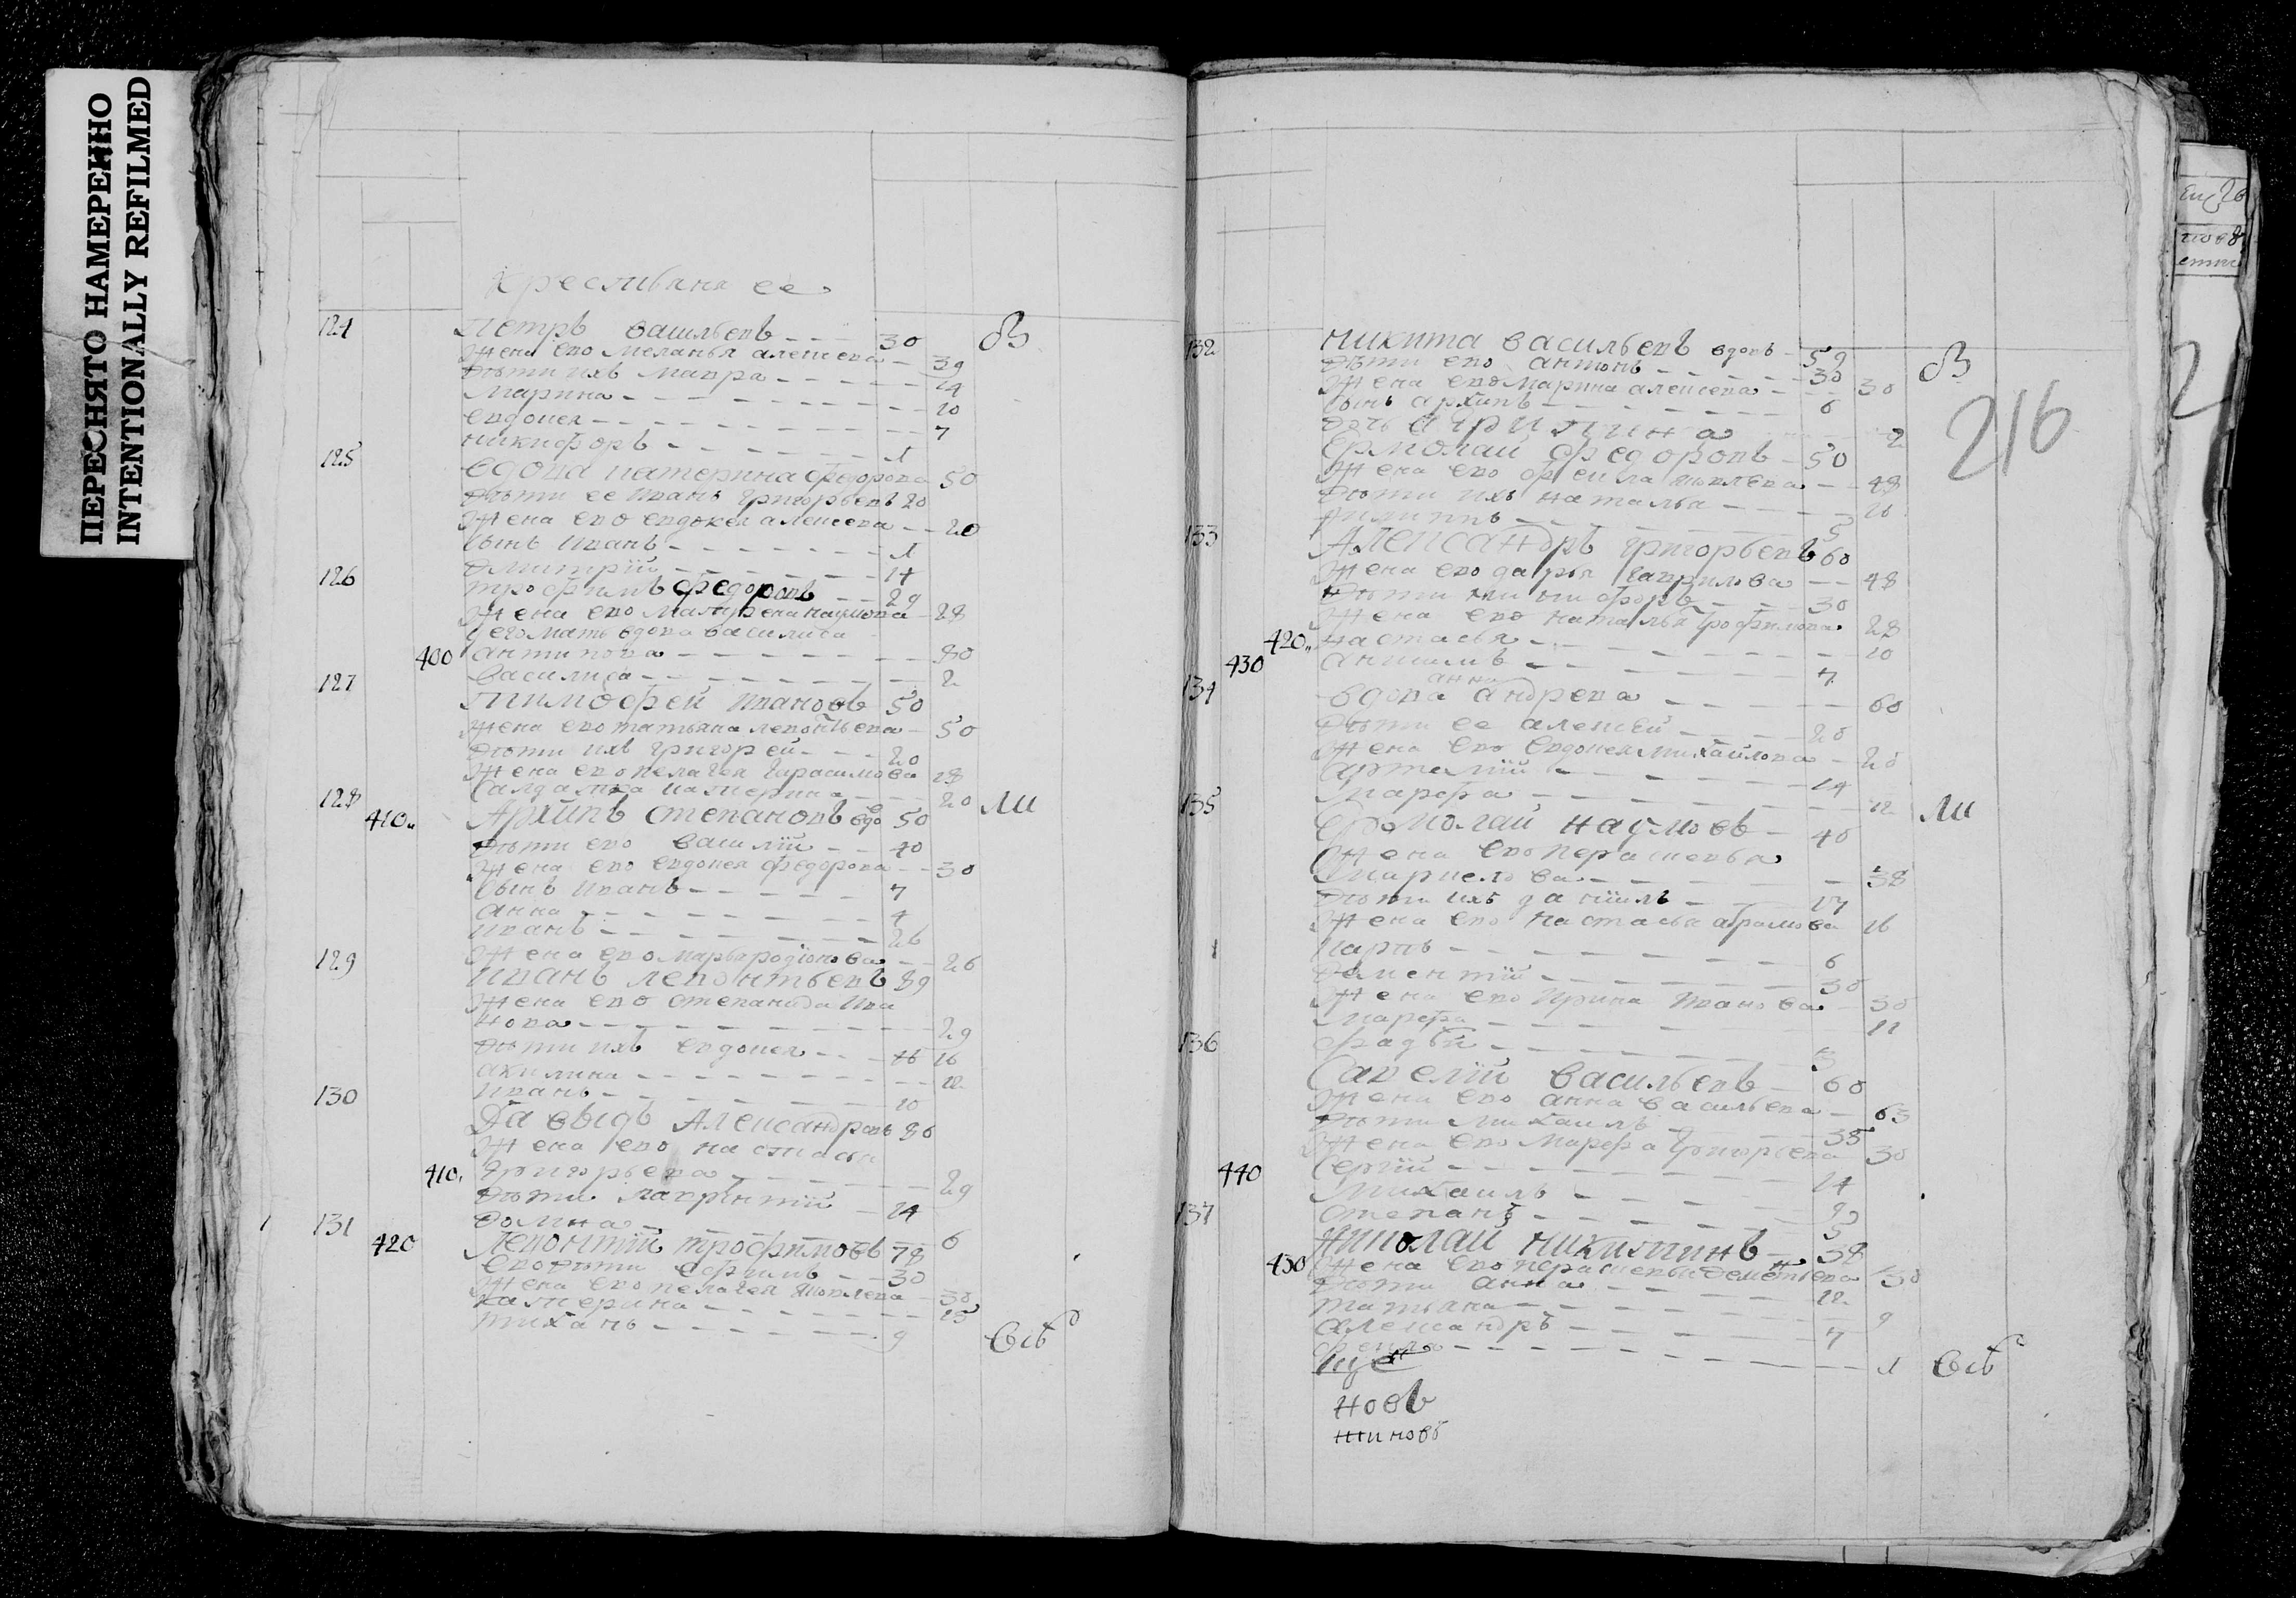 ПЕРЕСНЯТО НАМЕРЕННО
INTENTIONALLY REFILMED
крестьяня ее
124 Петръ васильевъ 30 бы
жена ево меланья алексева 39
дѣти ихъ мавра 14
марина 10
евдокея 7
никифоръ 1
125 вдова катерина федорова 50
дѣти ее иванъ григорьевъ 20
жена ево евдокея алексева 20
сынъ иванъ 1
дмитрїй 14
126 трофимъ федоровъ 29
жена ево наумова 28
у его мать вдова василиса
400 антипова 80
василиса 2
127 Тимофей ивановъ 50
жена ево татьяна левонтьева 50
дѣти ихъ григорей 20
жена ево пелагея гарасимова 28
салдатка катерина 20 ли
128 410 Архипъ степановъ вдо 50
дѣти ево василїй 40
жена ево евдокея федорова 30
сынъ иванъ 7
анна 4
иванъ 26
жена ево марья родїонова 26
129 иванъ левонтьевъ 89
жена ево степанида ива
нова 29
дѣти ихъ евдокея 16 16
акилина 12
иванъ 10
130 Давыдъ Александровъ 80
жена ево настасья
410 григорьева 29
дѣти лаврѣнтїй 14
домна 6
1 131 420 Левонтїй трофимовъ 78
ево дѣти ефимъ 30
жена ево пелагея яковлева 30
катерина 15
тиханъ 9
132 никита васильевъ вдовъ 59 бы
дѣти ево антонъ 30
жена ево марина алексева 30
сынъ архипъ 6
дочь агрипина 2
216
Ермолай федоровъ 50
жена ево фекла яковлева 48
дѣти ихъ наталья 16
филипъ 5
133 Александръ григорьевъ 60
жена ево дарья гаврилова 48
дѣти никифоръ 30
жена ево наталья трофимова 28
420 настасья 10
430 анисимъ 7
анна
134 вдова андрева 60
дѣти ее алексей 20
жена ево евдокея михайлова 20
артемїй 14
марфа 12
135 Ермолай наумовъ 40 ли
жена ево перасковья
маркелова 38
дѣти ихъ данїилъ 17
жена ево настасья абрамова 16
1 карпъ 6
дементїй 30
жена ево ирина иванова 30
марфа 11
136 фадѣй 3
Савелїй васильевъ 60
жена ево анна васильева 63
дѣти михаилъ 35
жена ево марфа григорьева 30
440 сергїй 14
михаилъ 9
137 степанъ 5
Николай никитинъ 38
430 жена ево перасковья дементьева 30
дѣти анна 12
татьяна 9
александръ 7
фекла 1
новъ